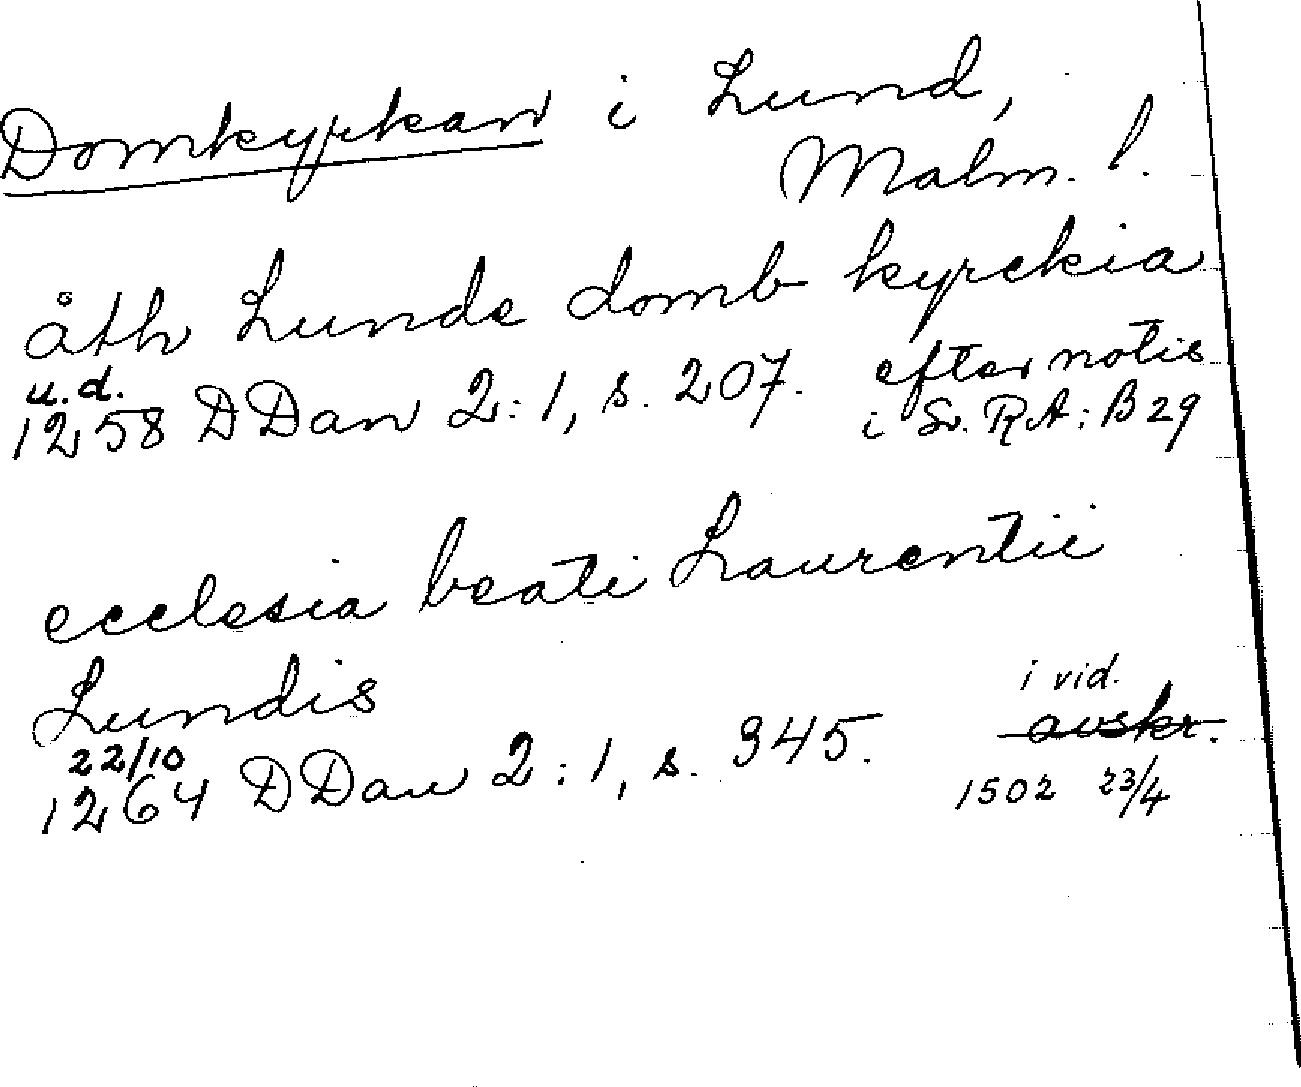 Domkyrkan i Lund,
Malm. l.
åth Lunde domb kyrckia
u.d.
1258 DDan 2:1, s. 207. efter notis
i Sv. RA: B 29
ecclesia beati Laurentii
Lundis
22/10
1264 DDan 2:1, s. 345.
i vid.
avskr.
1502 23/4